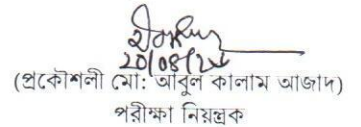 20/08/২৫
(প্রকৌশলী মো: আবুল কালাম আজাদ)
পরীক্ষা নিয়ন্ত্রক